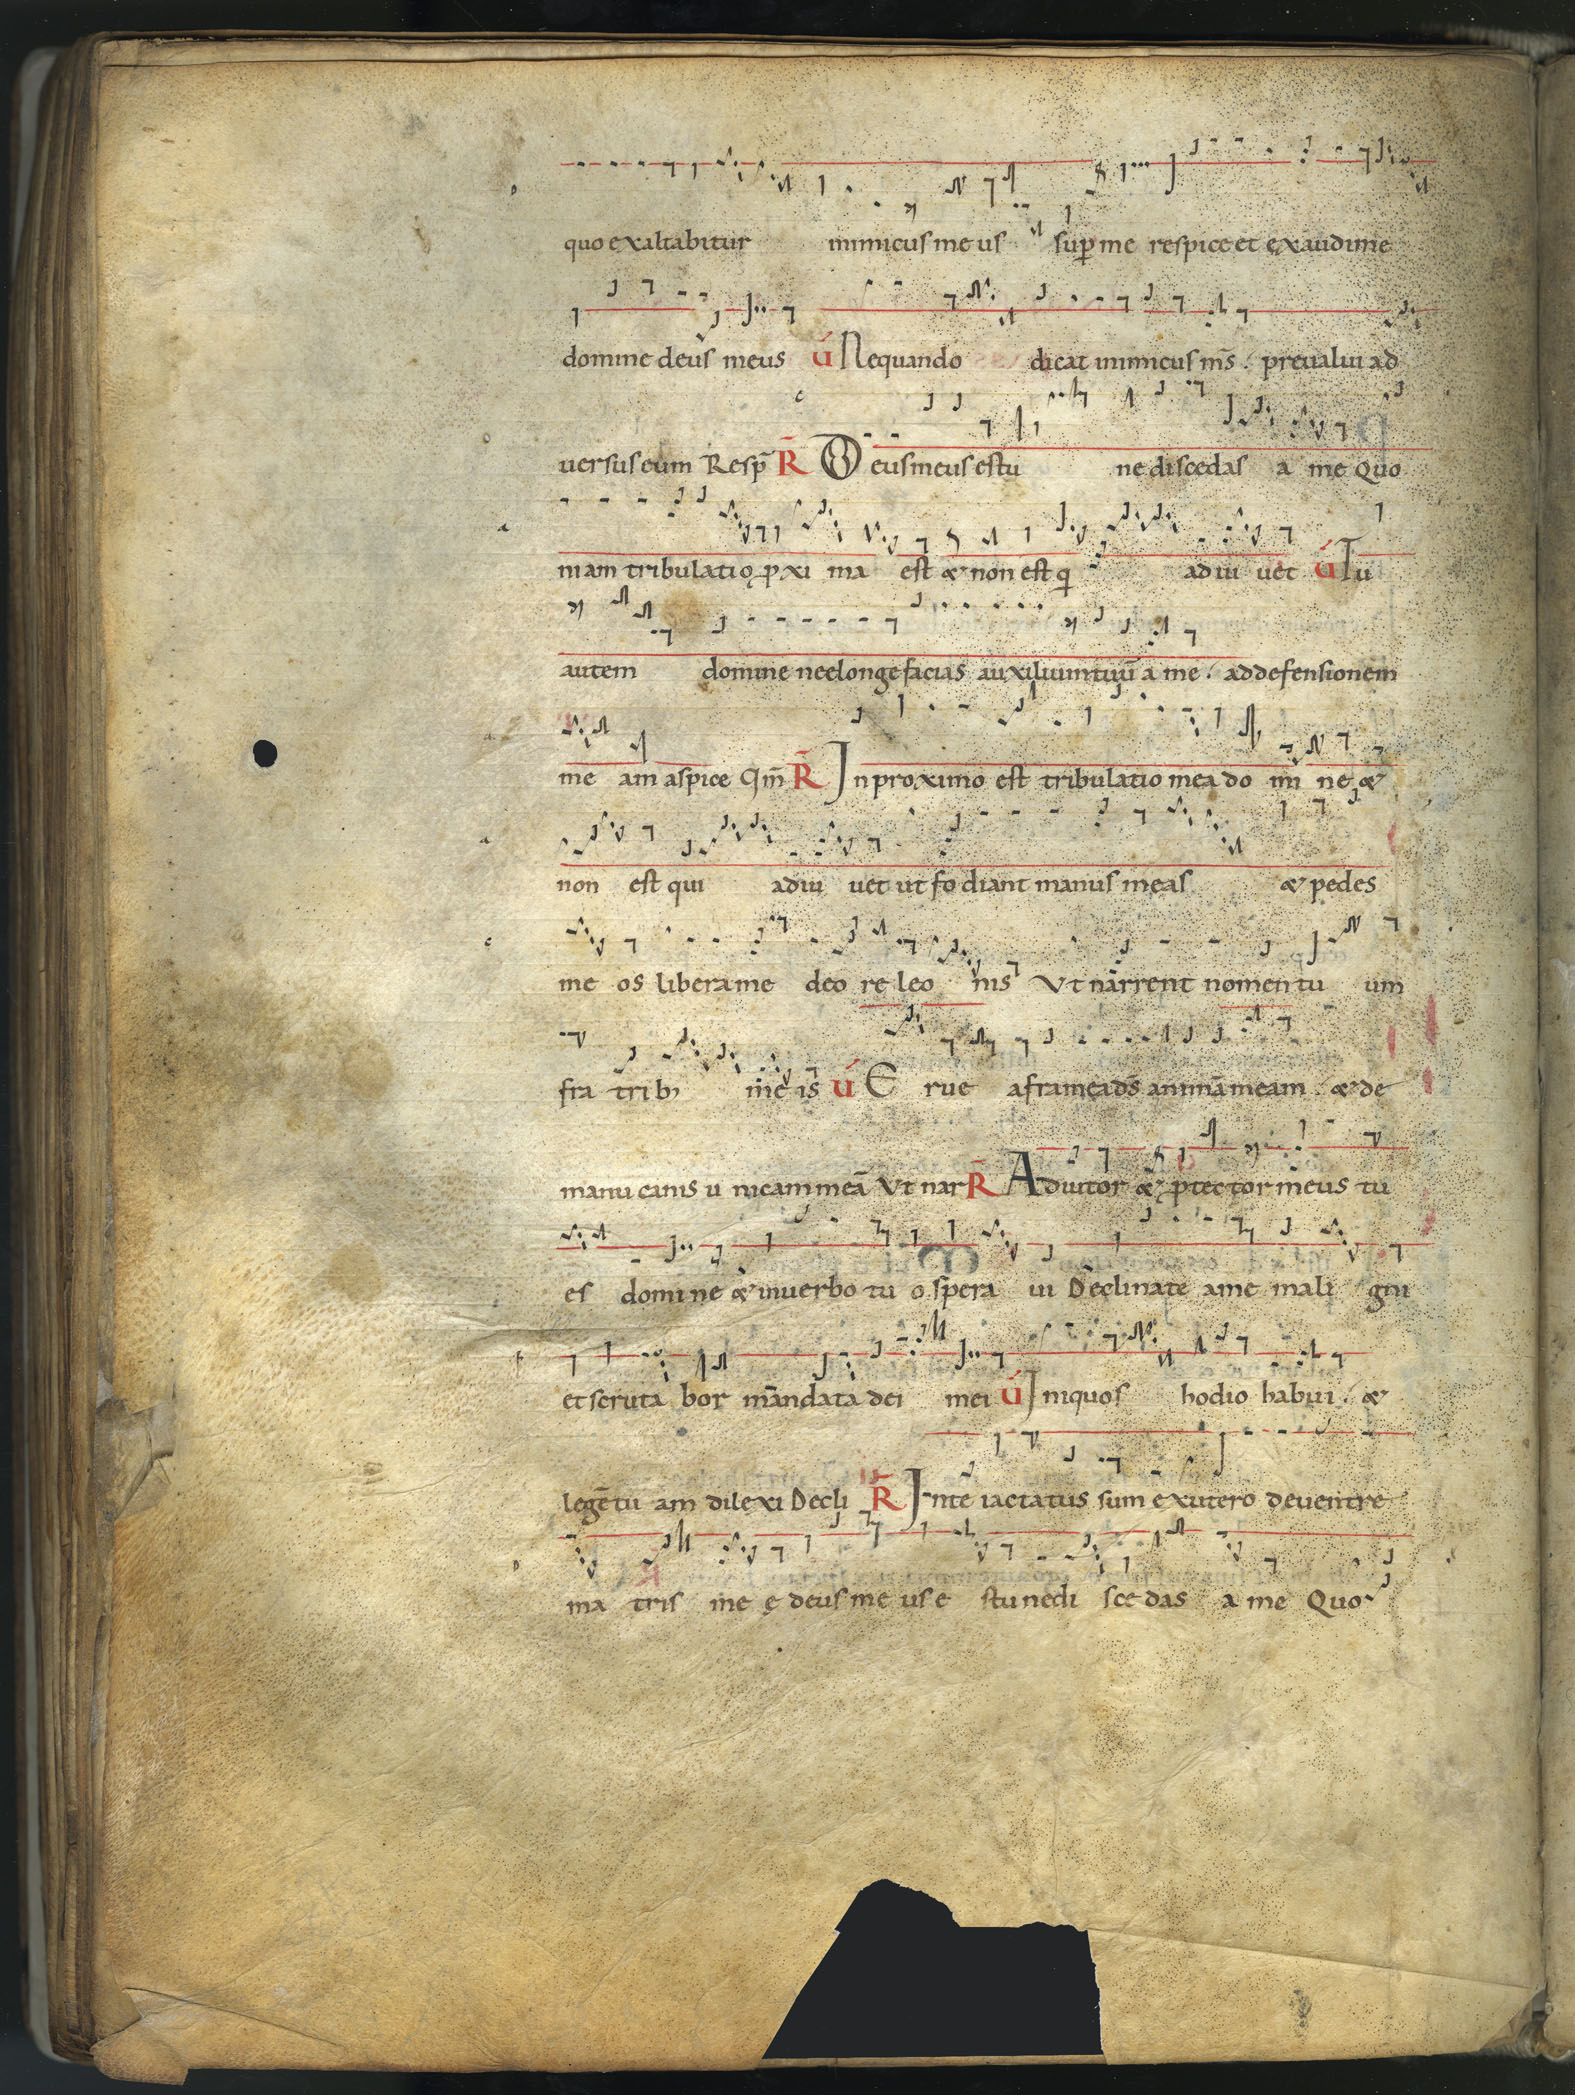 quo exaltabitur inimicus meus sup̄ me respice et exaudi me
domine deus meus V́ Nequando dicat inimicus m̄s. preualui ad
uersus eum Resp̄ R̄ Deus meus es tu ne discedas a me Quo
niam tribulatio p̱xi ma est & non est q̣ adiu uet V́ Tu
autem domine ne elonge facias auxilium tuū a me. ad defensionem
me am aspice Qm̄ R̄ In proximo est tribulatio mea do mi ne &
non est qui adiu uet ut fo diant manus meas & pedes
me os libera me de o re leo nis Vt narrent nomen tu um
fra trib; me is V́ E rue a framea ds̄ animā meam. & de
manu canis u nicam meā Vt nar R̄ Adiutor & p̱tector meus tu
es domi ne & in uerbo tu o spera ui Declinate a me mali gni
et scruta bor mandata dei mei V́ Iniquos hodio habui. &
legē tu am dilexi Decli R̄ In te iactatus sum ex utero de uentre
ma tris me ę deus me us e s tu ne di sce das a me Quo